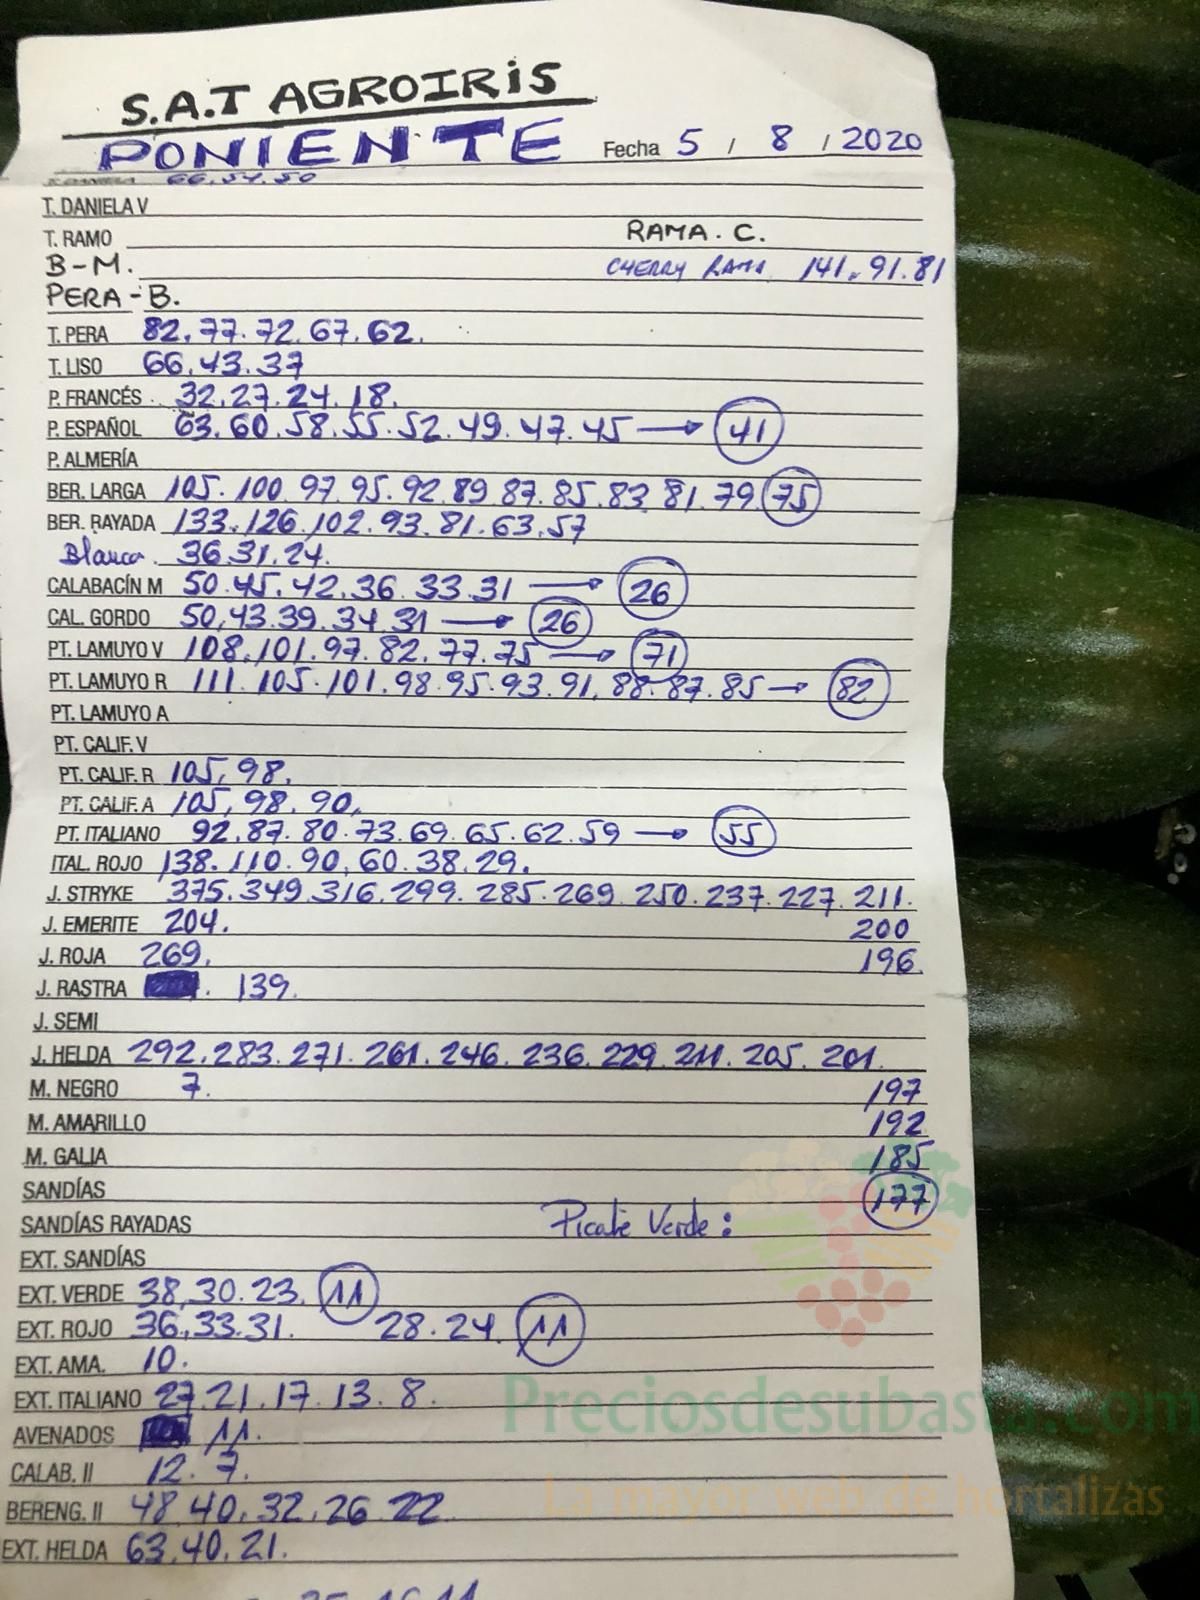 S.A.T AGROIRIS
PONIENTE Fecha 5 / 8 / 2020
66.54.50
T. DANIELA V
T. RAMO RAMA. C.
B-M. CHERRY RAMA 141.91.81
PERA-B.
T. PERA 82.77.72.67.62.
T. LISO 66.43.37
P. FRANCÉS 32.27.24.18.
P. ESPAÑOL 63.60.58.55.52.49.47.45 → 41
P. ALMERÍA
BER. LARGA 105.100.97.95.92.89.87.85.83.81.79 75
BER. RAYADA 133.126.102.93.81.63.57
Blanca 36.31.24.
CALABACÍN M 50.45.42.36.33.31 → 26
CAL. GORDO 50,43.39.34.31 → 26
PT. LAMUYO V 108.101.97.82.77.75 → 71
PT. LAMUYO R 111.105.101.98.95.93.91.88.87.85 → 82
PT. LAMUYO A
PT. CALIF. V
PT. CALIF. R 105,98.
PT. CALIF. A 105,98.90.
PT. ITALIANO 92.87.80.73.69.65.62.59 → 55
ITAL. ROJO 138.110.90,60.38.29.
J. STRYKE 375.349.316.299.285.269.250.237.227.211.
J. EMERITE 204. 200
J. ROJA 269. 196
J. RASTRA 139.
J. SEMI
J. HELDA 292.283.271.261.246.236.229.211.205.201.
M. NEGRO 7. 197
M. AMARILLO 192
M. GALIA 185
SANDÍAS 177
SANDÍAS RAYADAS Verde :
EXT. SANDÍAS
EXT. VERDE 38,30.23. 11
EXT. ROJO 36,33.31. 28.24. 11
EXT. AMA. 10.
EXT. ITALIANO 27.21.17.13.8.
Preciosdesubasta.com
AVENADOS 11.
CALAB. II 12.7.
La mayor web de hortalizas
BERENG. II 48.40.32.26.22
EXT. HELDA 63,40.21.